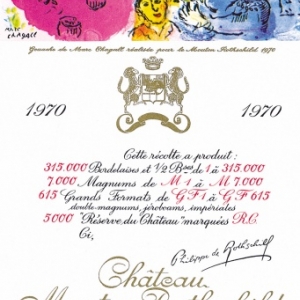 Marc
Chagall
Gouache de Marc Chagall réalisée pour le Mouton Rothschild 1970
1970
1970
Cette récolte a produit :
315.000 Bordelaises et ½ Bses de 1 à 315.000
7.000 Magnums de M 1 à M 7.000
615 Grands Formats de G F 1 à G F 615
double-magnums, jéroboams, impériales
5000 "Réserve du Château" marquées R.C.
Ci,
Philippe de Rothschild
Château
Mouton Rothschild